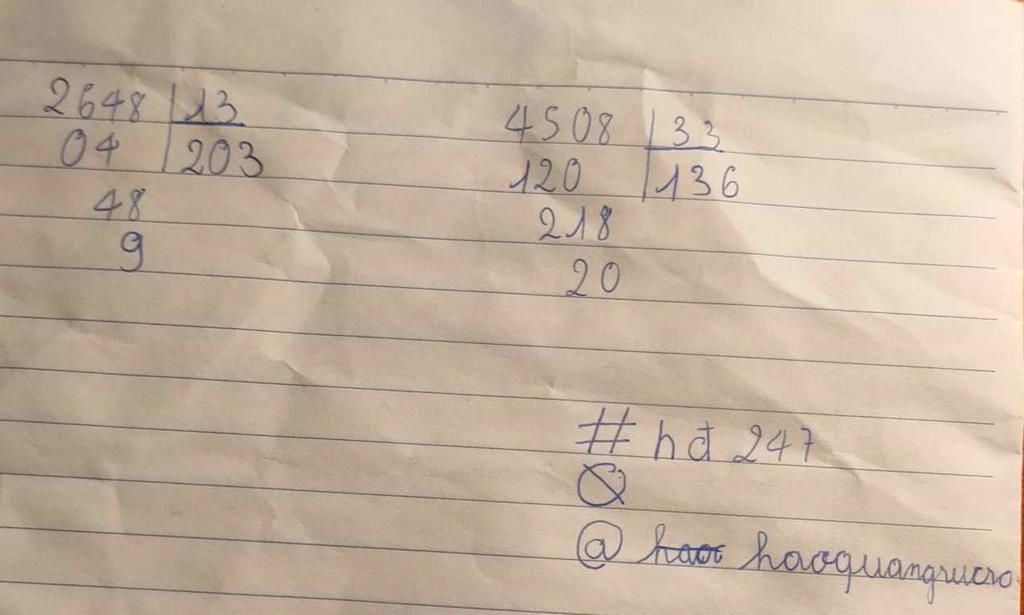 2648 | 13
04 | 203
48
9
4508 | 33
120 | 136
218
20
# hđ 247
@ haoquangrucro